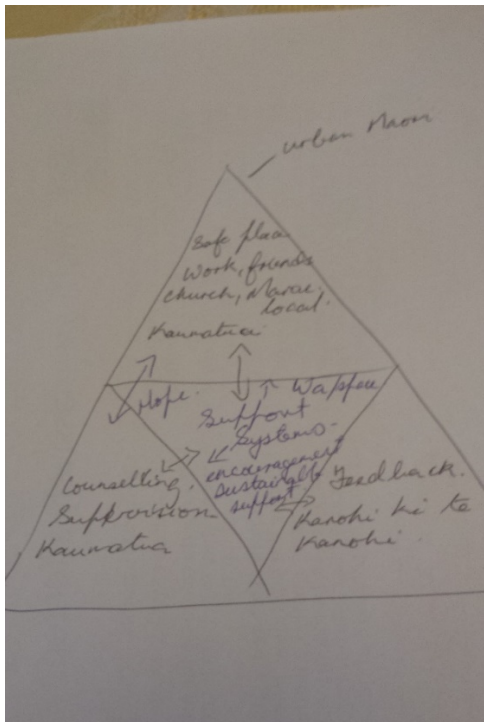 urban Maori
Safe place
Work, friends
church, Marae,
local.
Kaumatua
Hope.
Support
Systems -
encouragement
Sustainable
support
Counselling.
Suppvision
Kaumatua
Feedback.
Kanohi ki te
Kanohi.